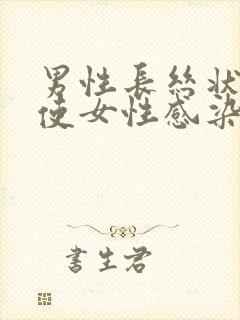 男性長絲状
使女性感染
書生君